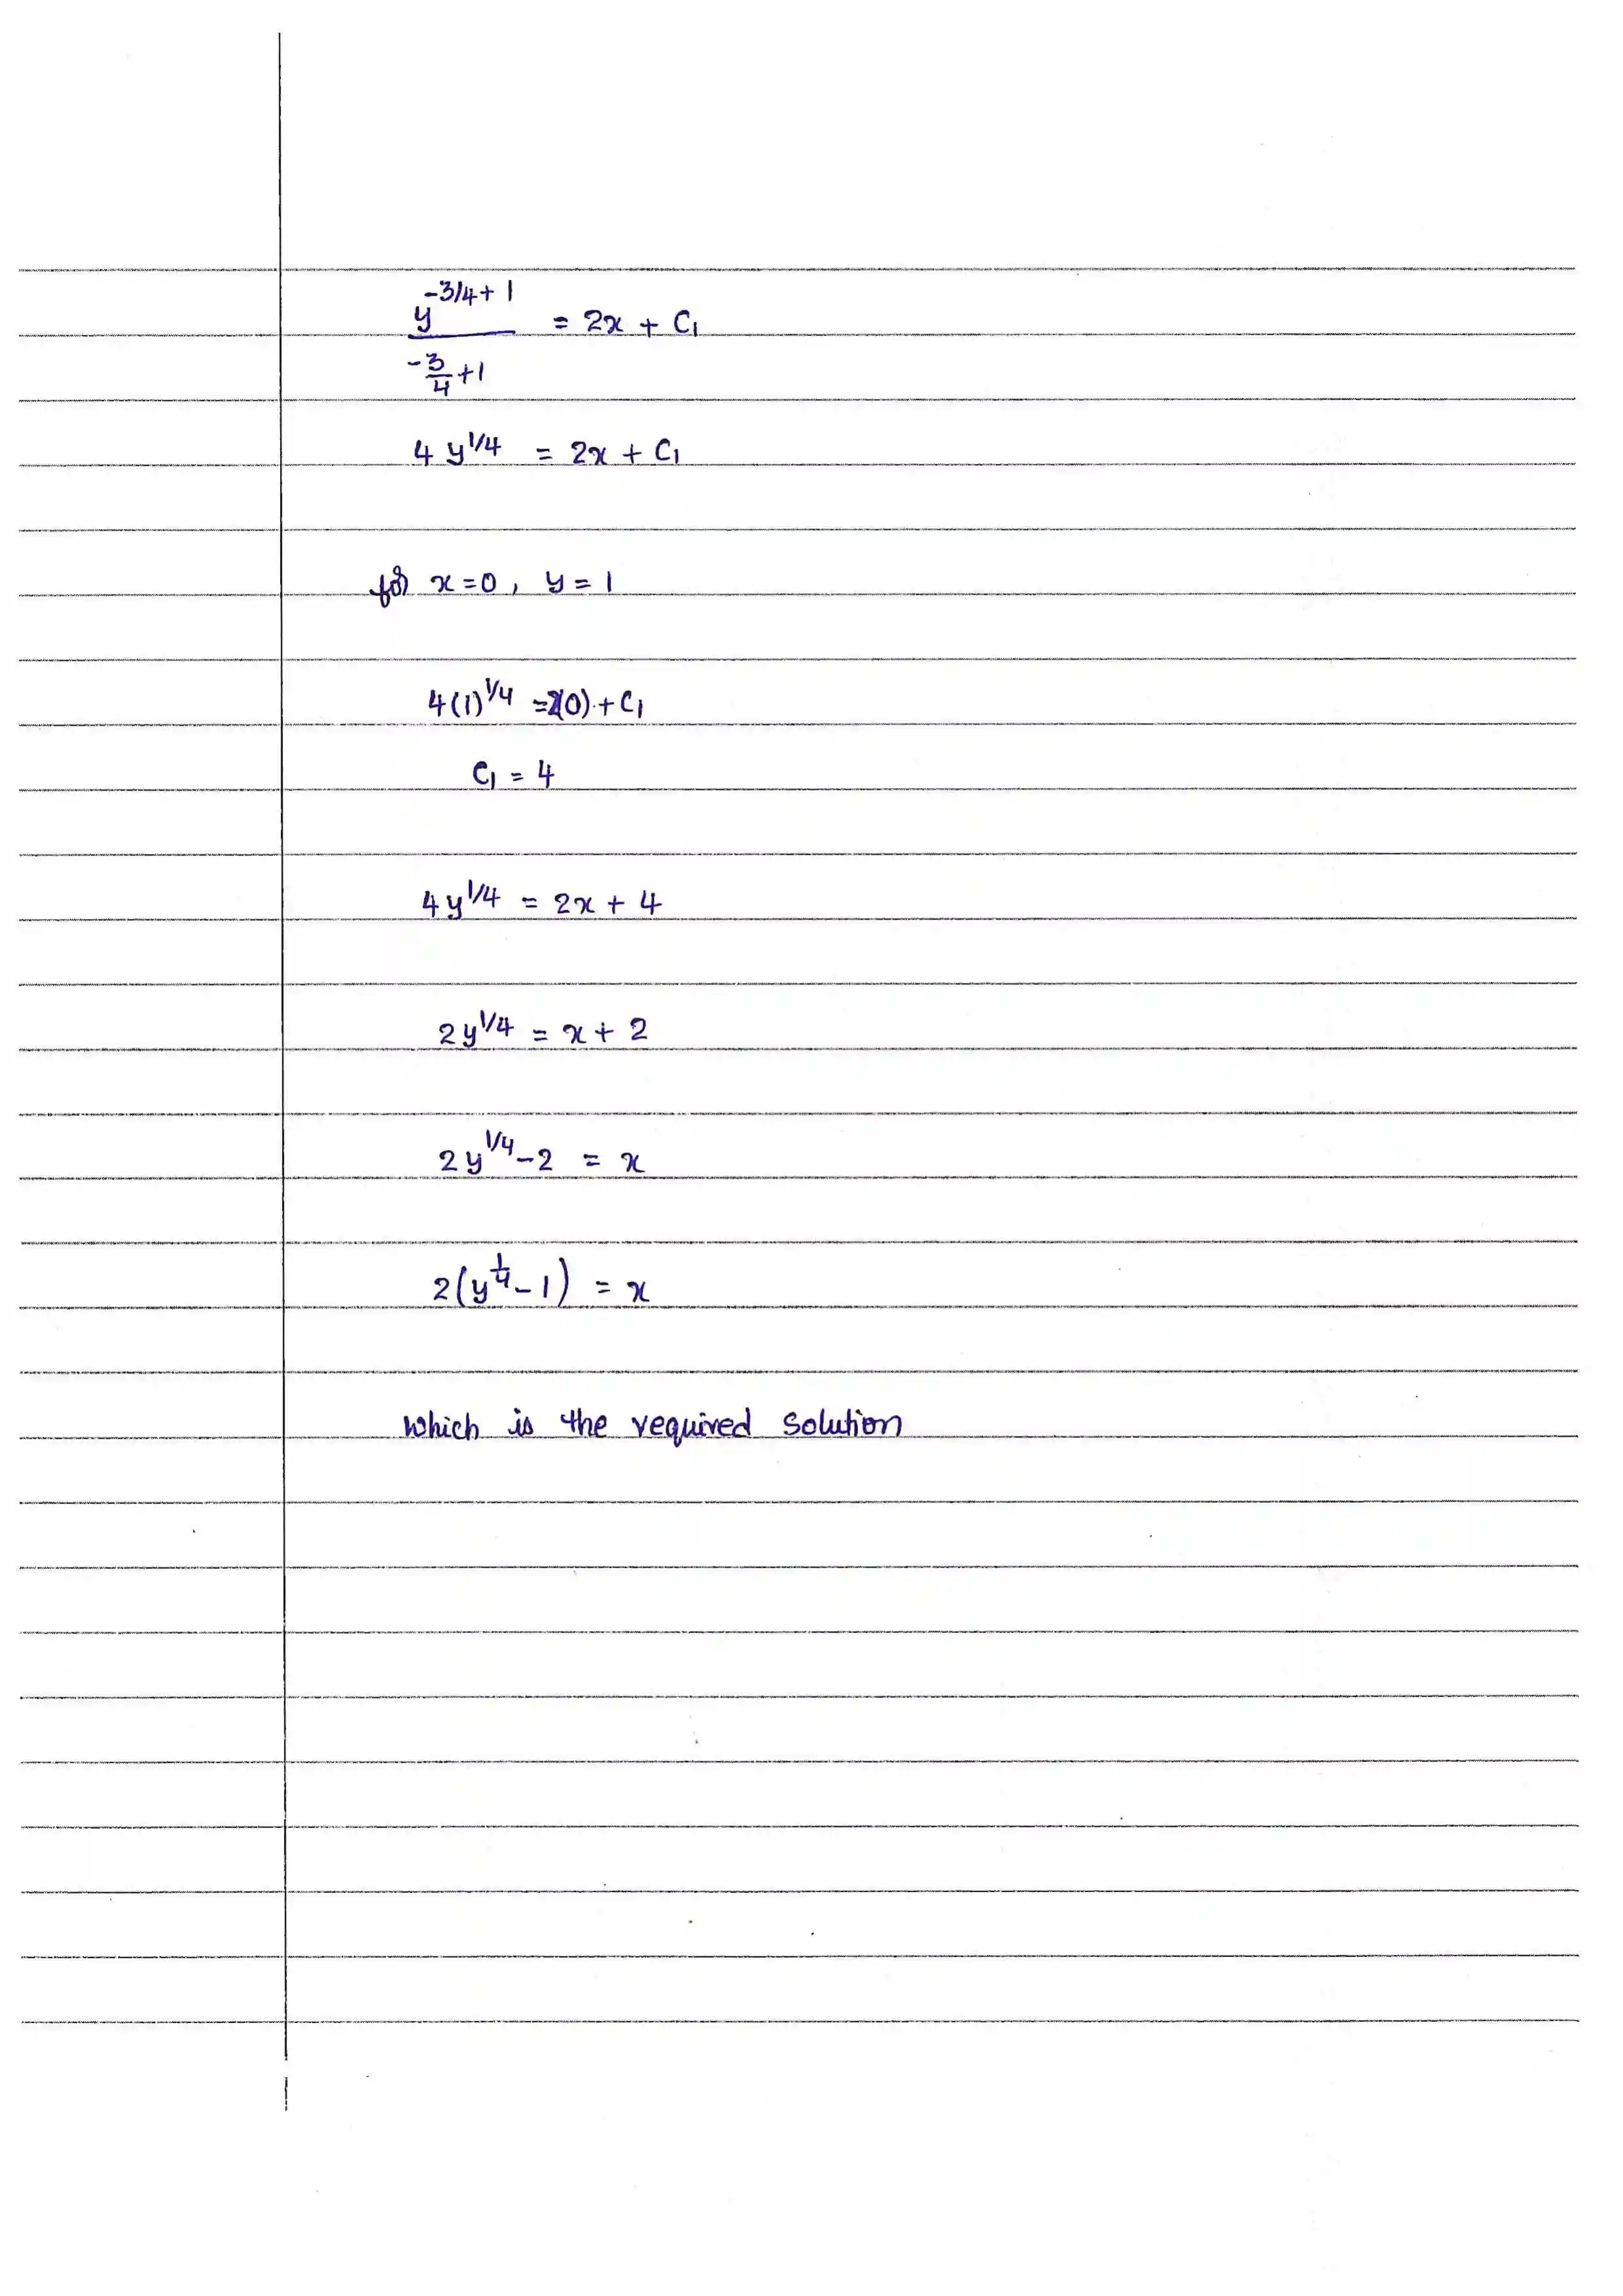 y^(-3/4+1) / (-3/4+1) = 2x + C₁
4 y^(1/4) = 2x + C₁
for x=0, y=1
4(1)^(1/4) = 2(0) + C₁
C₁ = 4
4y^(1/4) = 2x + 4
2y^(1/4) = x + 2
2y^(1/4) - 2 = x
2(y^(1/4) - 1) = x
Which is the required solution